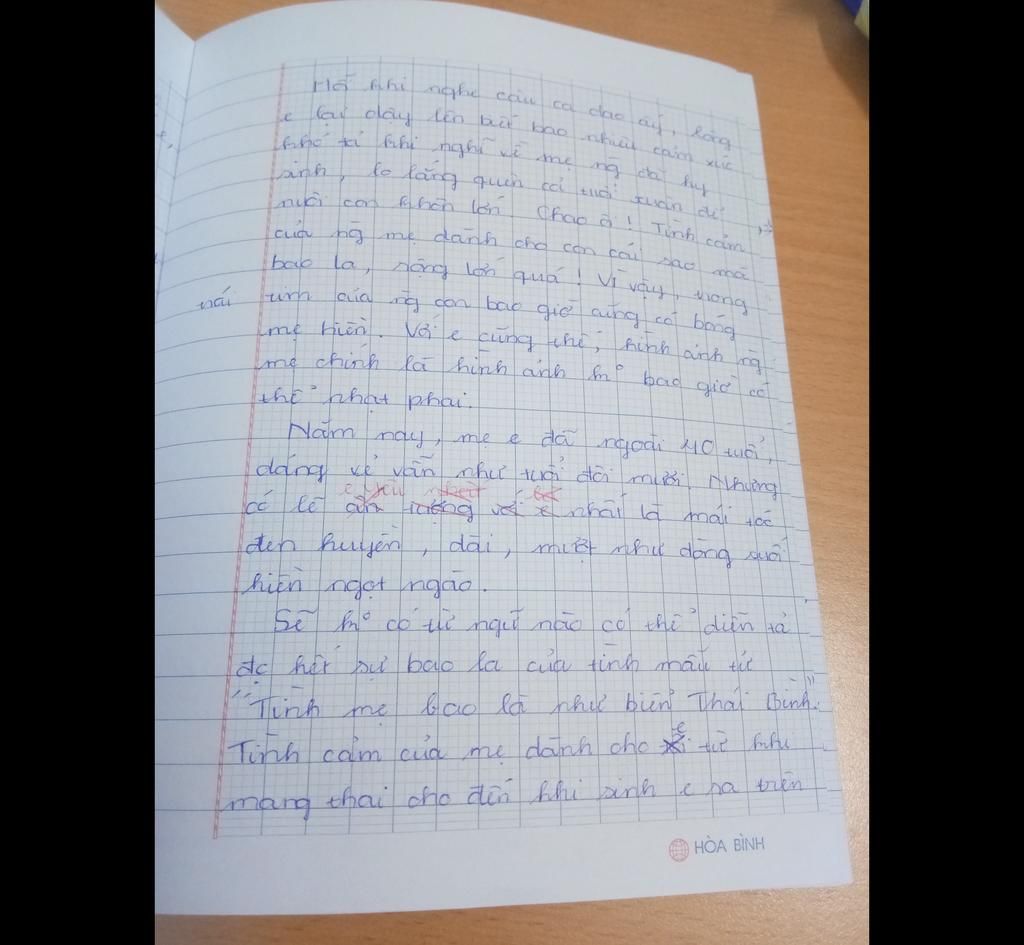 Mỗi khi nghe câu ca dao ấy, lòng
e lại dậy lên biết bao nhiêu cảm xúc
khó tả khi nghĩ về mẹ ng đã hy
sinh, lo lắng quên cả tuổi xuân để
nuôi con khôn lớn. Chao ôi! Tình cảm
của ng mẹ dành cho con cái sao mà
bao la, rộng lớn quá! Vì vậy, trong
trái tim của ng con bao giờ cũng có bóng
mẹ hiền. Với e cũng thế, hình ảnh ng
mẹ chính là hình ảnh ko bao giờ có
thể nhạt phai.
Năm nay, mẹ e đã ngoài 40 tuổi,
dáng vẻ vẫn như tuổi đôi mươi. Nhưng
có lẽ ấn tượng với e nhất là mái tóc
đen huyền, dài, mượt như dòng suối
hiền ngọt ngào.
Sẽ ko có từ ngữ nào có thể diễn tả
đc hết sự bao la của tình mẫu tử
"Tình mẹ bao la như biển Thái Bình"
Tình cảm của mẹ dành cho e từ khi
mang thai cho đến khi sinh e ra trên
HÒA BÌNH